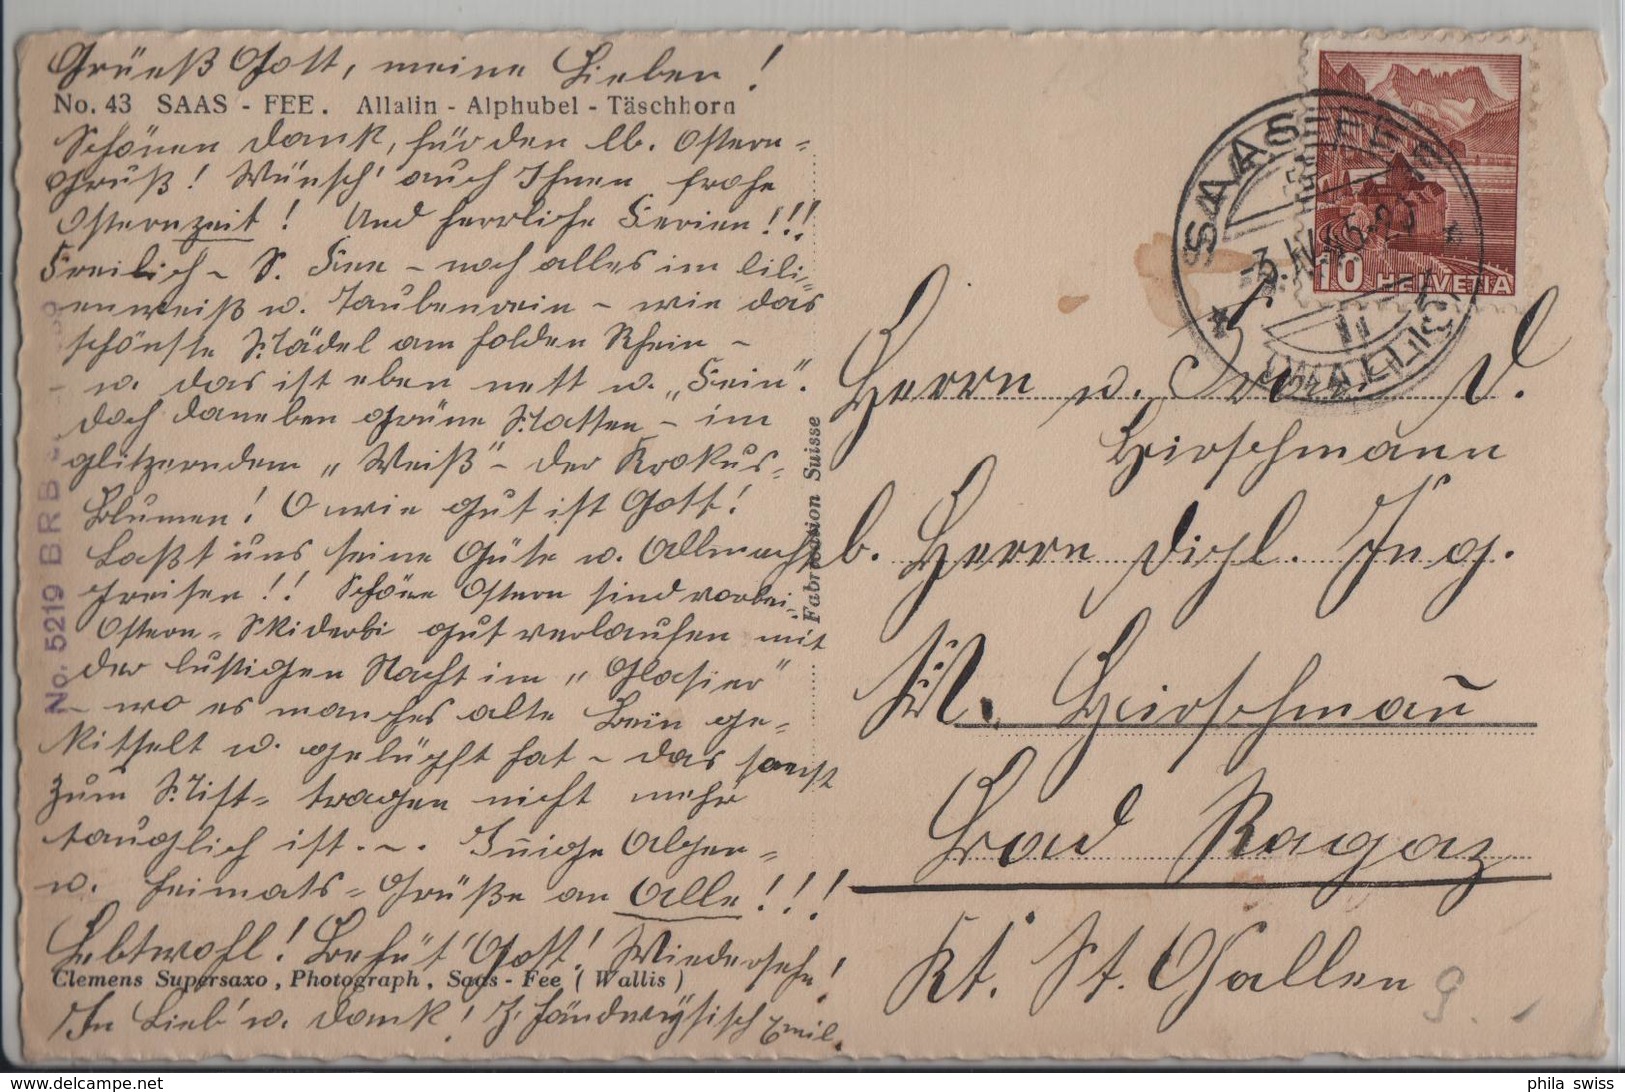 Grüeß Gott, meine Lieben!
No. 43 SAAS - FEE. Allalin - Alphubel - Täschhorn
Schönen Dank, für den lb. Ostern-
Gruß! Wünsch' auch Ihnen frohe
Osternzeit! Und herrliche Ferien!!!
Freilich ~ S. Fee ~ noch alles im lili-
enweiß u. Taubenrein ~ wie das
schönste Mädel am holden Rhein ~
u. das ist eben nett u. „Fein".
doch daneben grüne Matten ~ im
glitzerndem „Weiß" ~ der Krokus-
Blumen! O wie gut ist Gott!
Laßt uns seine Güte u. Allmacht
preisen!! Schöne Ostern sind vorbei.
Ostern- Skiderbi gut verlaufen mit
der lustigen Nacht im „Glasier"
~ wo es manches alte Bein ge-
kitzelt u. gelüpft hat ~ das sonst
zum Mist- tragen nicht mehr
tauglich ist. ~. Innige Alpen-
u. Heimats- Grüße an Alle!!!
Lebtwohl! Behüt' Gott! Wiedersehn!
Clemens Supersaxo, Photograph, Saas - Fee (Wallis)
In Lieb' u. Dank! Emil.
No. 5219 BRB
Fabrication Suisse
SAAS
3.IV.45-20
10 HELVETIA
Herrn u. Frau D.
Hirschmann
b. Herrn Dipl. Ing.
M. Hirschmañ
Bad Ragaz
Kt. St. Gallen
phila swiss